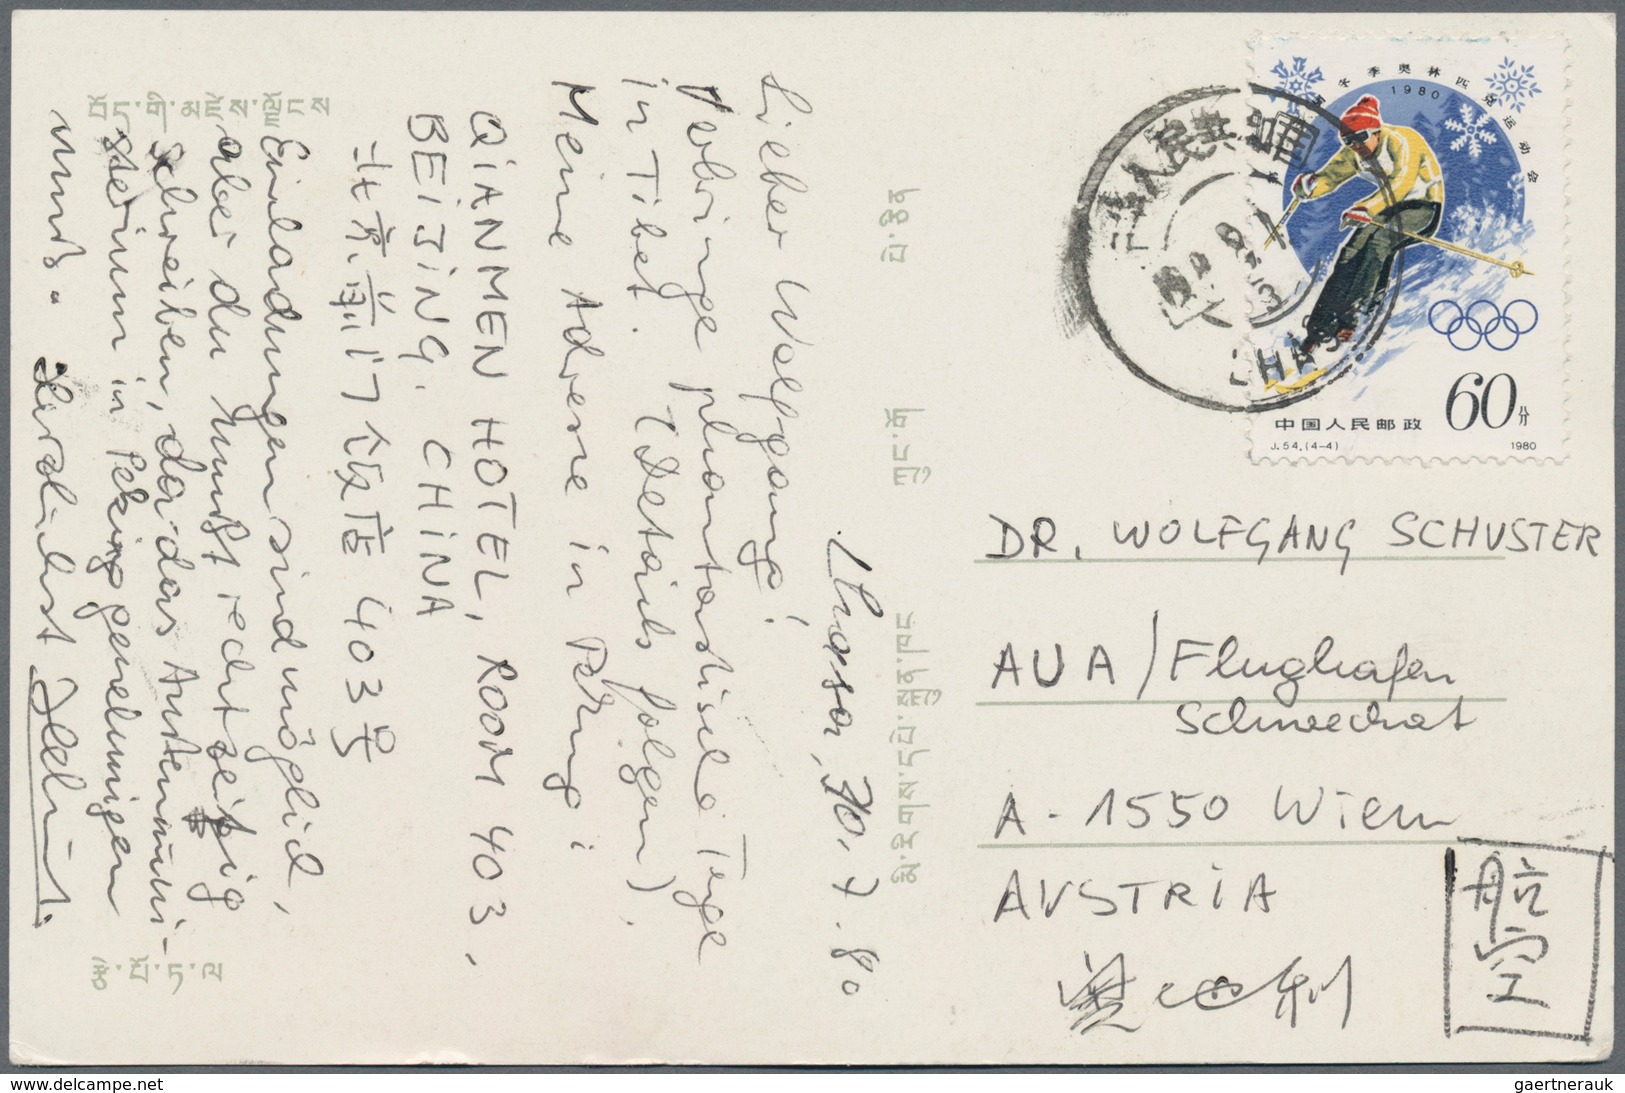 Lhasa, 30.7.80
Lieber Wolfgang!
Verbringe phantastische Tage
in Tibet. (Details folgen).
Meine Adresse in Peking:
QIANMEN HOTEL, ROOM 403,
BEIJING. CHINA
北京前门饭店 403号
Einladungen sind möglich,
aber du mußt rechtzeitig
schreiben, da das Außenmini-
sterium in Peking genehmigen
muß. Herzlichst Helmut.
DR. WOLFGANG SCHUSTER
AUA / Flughafen
Schwechat
A-1550 Wien
AUSTRIA
奥地利
航空
1980
60分
中国人民邮政
J.54.(4-4) 1980
gaertnerauk